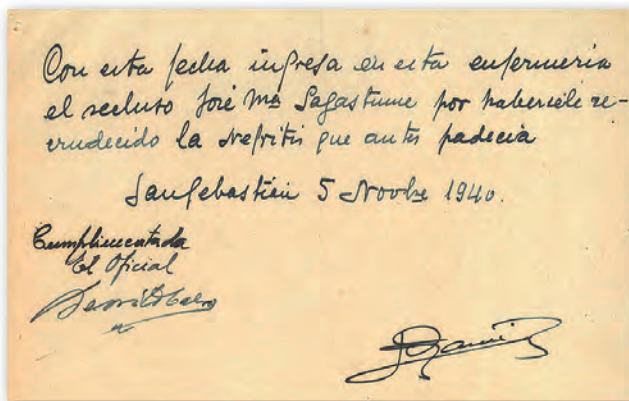 Con esta fecha ingresa en esta enfermeria
el recluso José Mª Sagastume por habersele re-
crudecido la nefritis que antes padecia
San Sebastián 5 Novbre 1940.
Cumplimentada
El Oficial